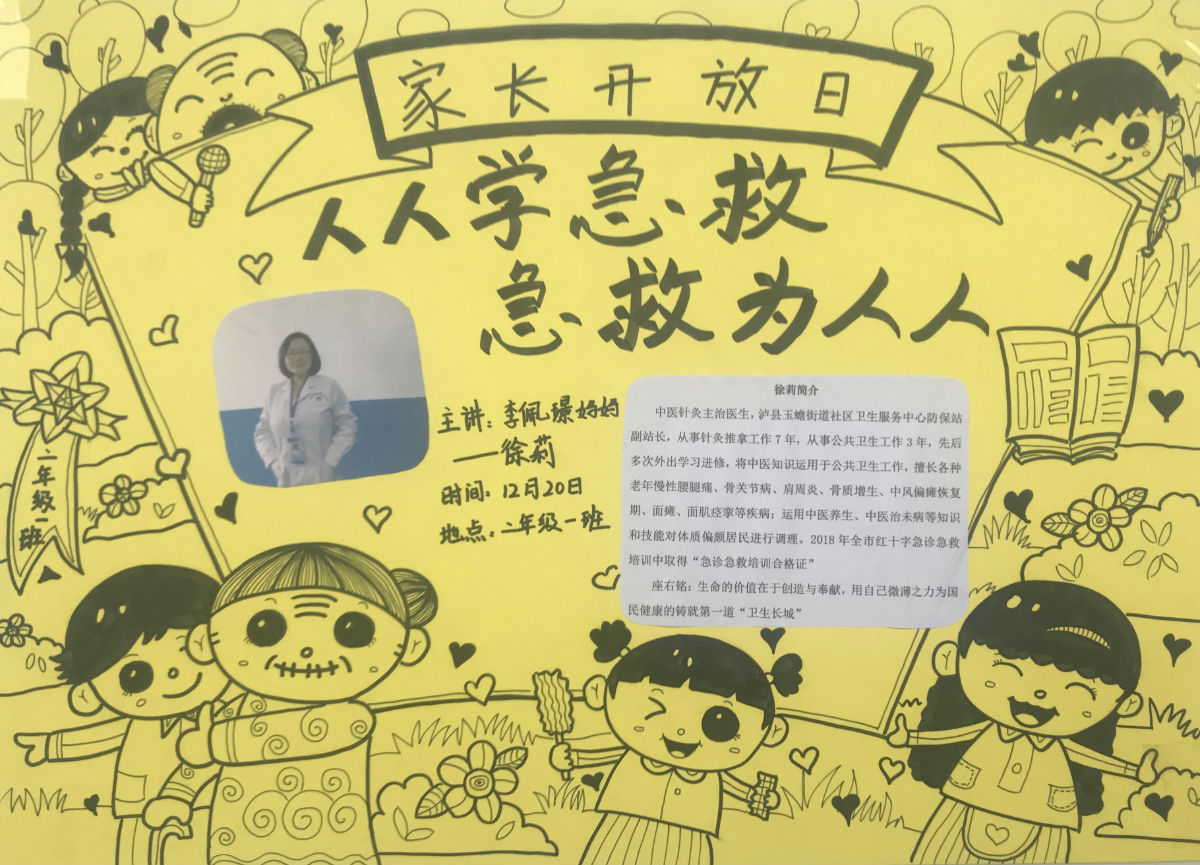 家长开放日
人人学急救
急救为人人
主讲：李佩璟妈妈
——徐莉
时间：12月20日
地点：二年级一班
二年级一班
徐莉简介
中医针灸主治医生，泸县玉蟾街道社区卫生服务中心防保站
副站长，从事针灸推拿工作7年，从事公共卫生工作3年，先后
多次外出学习进修，将中医知识运用于公共卫生工作，擅长各种
老年慢性腰腿痛、骨关节病、肩周炎、骨质增生、中风偏瘫恢复
期、面瘫、面肌痉挛等疾病；运用中医养生、中医治未病等知识
和技能对体质偏颇居民进行调理。2018年全市红十字急诊急救
培训中取得“急诊急救培训合格证”
座右铭：生命的价值在于创造与奉献，用自己微薄之力为国
民健康的铸就第一道“卫生长城”